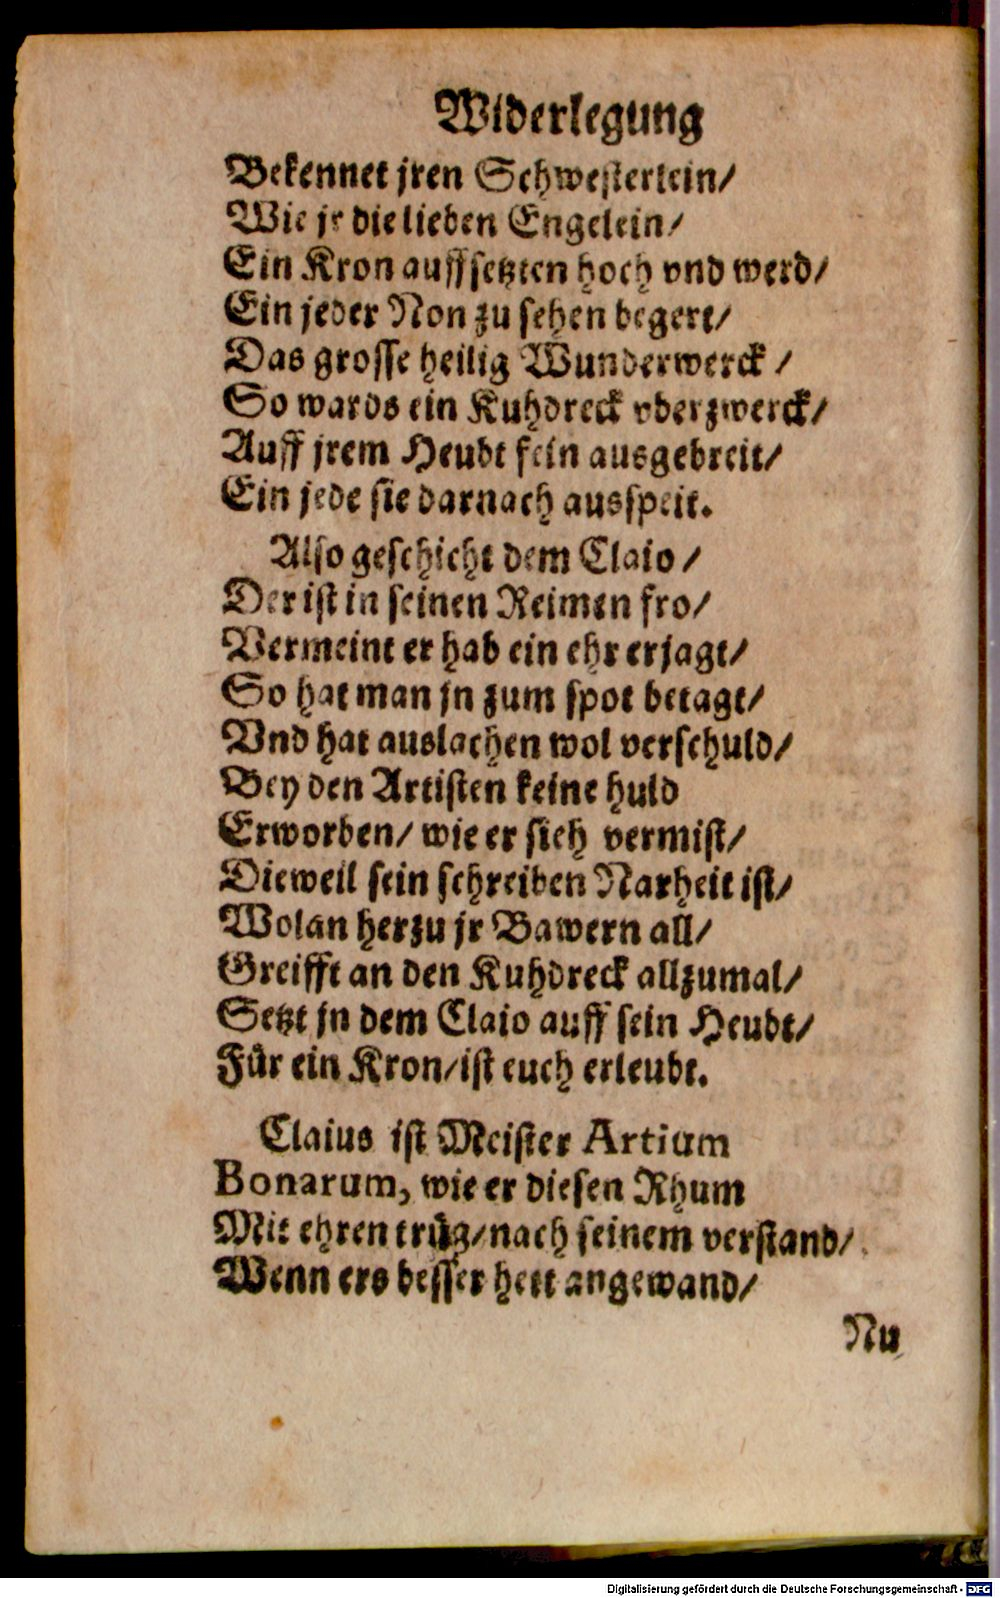 Widerlegung
Bekennet jren Schwesterlein/
Wie jr die lieben Engelein/
Ein Kron auffsetzten hoch vnd werd/
Ein jeder Non zu sehen begert/
Das grosse heilig Wunderwerck /
So wards ein Kuhdreck vberzwerck/
Auff jrem Heubt fein ausgebreit/
Ein jede sie darnach ausspeit.
Also geschicht dem Claio /
Der ist in seinen Reimen fro/
Vermeint er hab ein ehr erjagt/
So hat man jn zum spot betagt/
Vnd hat auslachen wol verschuld/
Bey den Artisten keine huld
Erworben/ wie er sich vermist/
Dieweil sein schreiben Narheit ist/
Wolan herzu jr Bawern all/
Greifft an den Kuhdreck allzumal/
Setzt jn dem Claio auff sein Heubt/
Für ein Kron/ist euch erleubt.
Claius ist Meister Artium
Bonarum, wie er diesen Rhum
Mit ehren trüg/nach seinem verstand/
Wenn ers besser hett angewand/
Nu
Digitalisierung gefördert durch die Deutsche Forschungsgemeinschaft - DFG